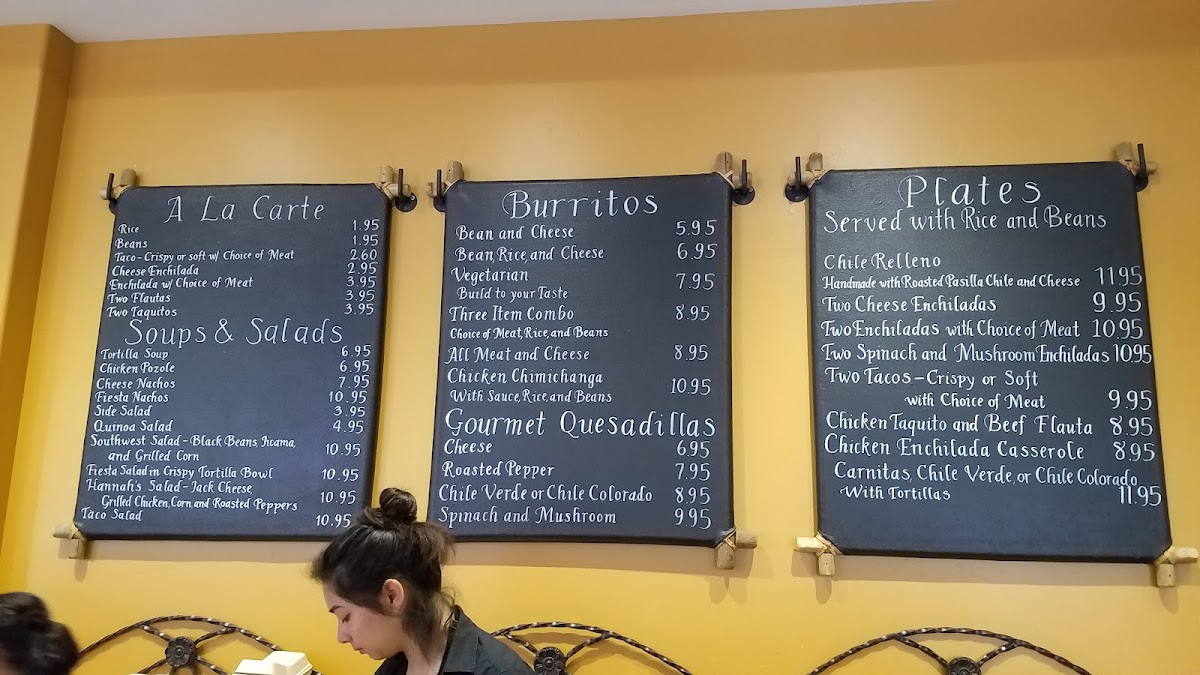 A La Carte
Rice 1.95
Beans 1.95
Taco - Crispy or soft w/ Choice of Meat 2.60
Cheese Enchilada 2.95
Enchilada w/ Choice of Meat 3.95
Two Flautas 3.95
Two Taquitos 3.95
Soups & Salads
Tortilla Soup 6.95
Chicken Pozole 6.95
Cheese Nachos 7.95
Fiesta Nachos 10.95
Side Salad 3.95
Quinoa Salad 4.95
Southwest Salad - Black Beans, Jicama,
and Grilled Corn 10.95
Fiesta Salad in Crispy Tortilla Bowl 10.95
Hannah's Salad - Jack Cheese
Grilled Chicken, Corn, and Roasted Peppers 10.95
Taco Salad 10.95
Burritos
Bean and Cheese 5.95
Bean, Rice, and Cheese 6.95
Vegetarian 7.95
Build to your Taste
Three Item Combo 8.95
Choice of Meat, Rice, and Beans
All Meat and Cheese 8.95
Chicken Chimichanga 10.95
With Sauce, Rice, and Beans
Gourmet Quesadillas
Cheese 6.95
Roasted Pepper 7.95
Chile Verde or Chile Colorado 8.95
Spinach and Mushroom 9.95
Plates
Served with Rice and Beans
Chile Relleno
Handmade with Roasted Pasilla Chile and Cheese 11.95
Two Cheese Enchiladas 9.95
Two Enchiladas with Choice of Meat 10.95
Two Spinach and Mushroom Enchiladas 10.95
Two Tacos - Crispy or Soft
with Choice of Meat 9.95
Chicken Taquito and Beef Flauta 8.95
Chicken Enchilada Casserole 8.95
Carnitas, Chile Verde, or Chile Colorado
With Tortillas 11.95